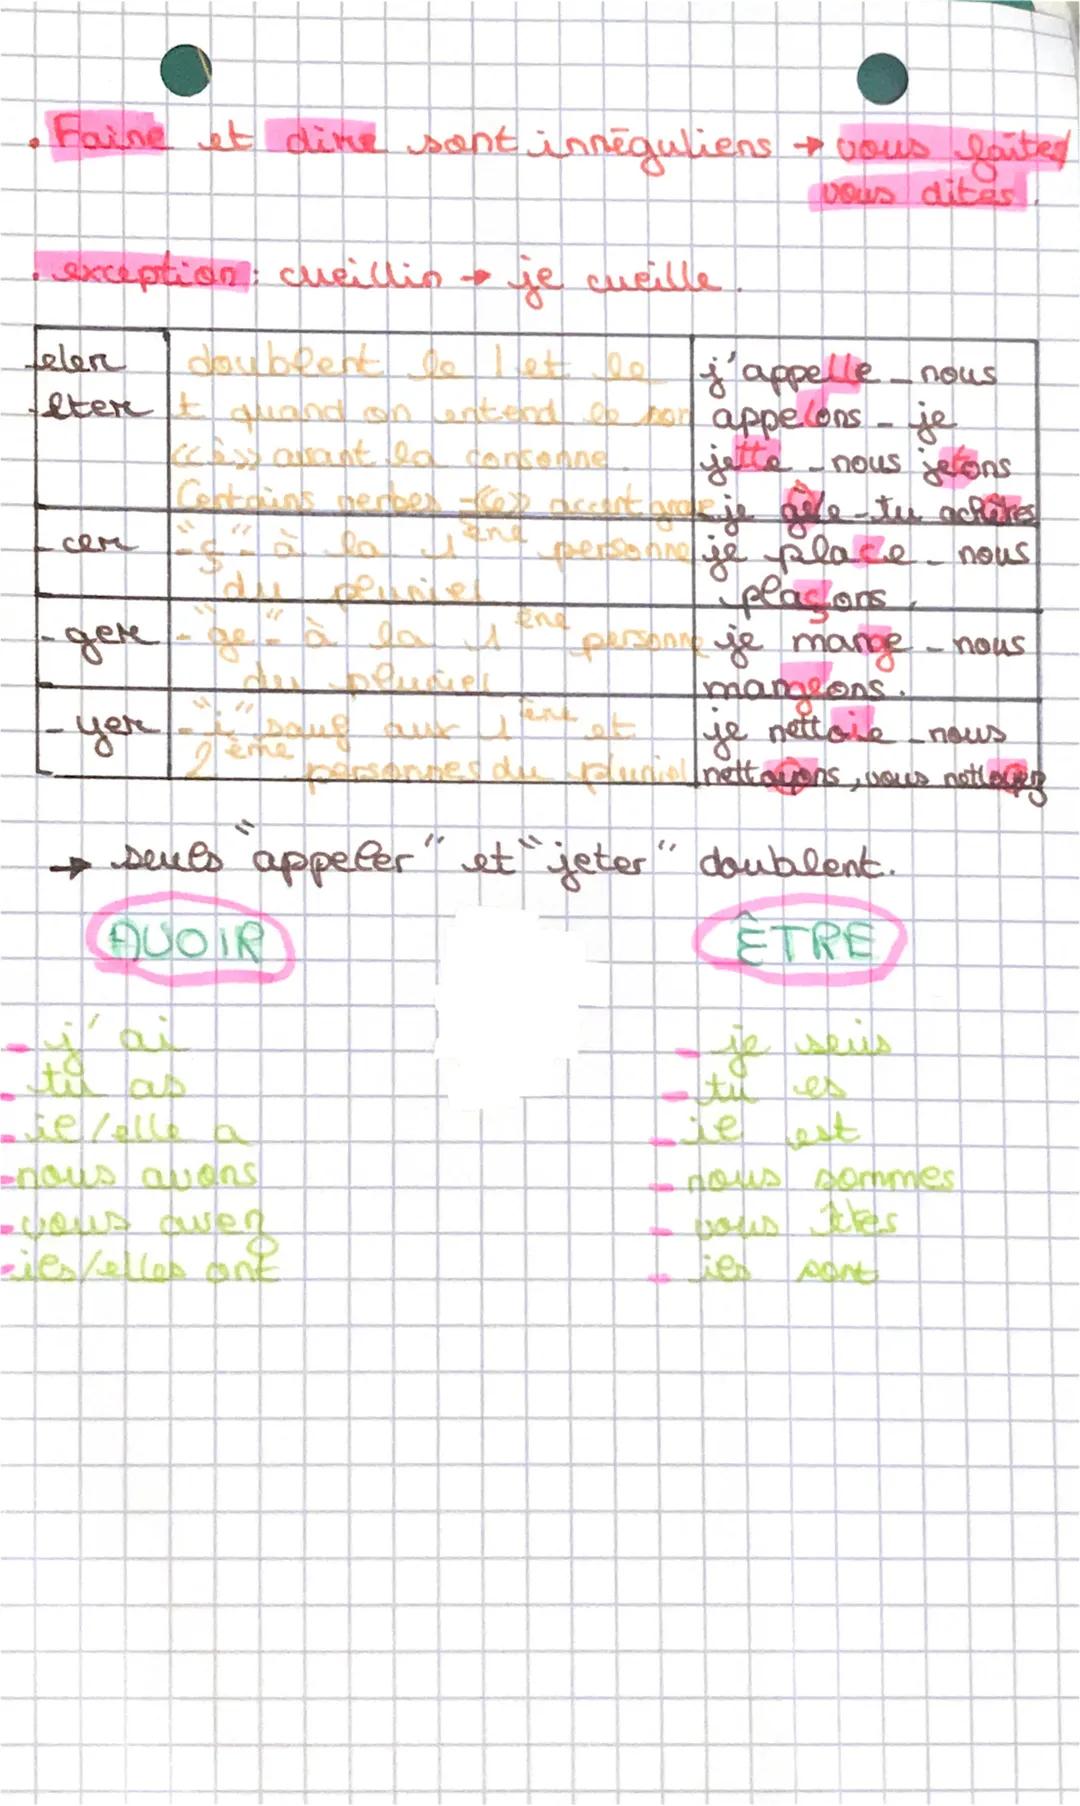 . Faire et dire sont irréguliers → vous faîtes
vous dites.
. exception : cueillir → je cueille.
-eler
-eter
doublent le l et le
t quand on entend le son
<<è>> avant la consonne.
Certains verbes accent grave
j'appelle - nous
appelons - je
jette - nous jetons
je gèle - tu achètes
- cer
- "ç" - à la 1ère personne
du pluriel
je place - nous
plaçons.
- ger
- "ge" - à la 1ère personne
du pluriel
je mange - nous
mangeons.
- yer
- "i" sauf aux 1ère et
2ème personnes du pluriel
je nettoie - nous
nettoyons, vous nettoyez
→ seuls "appeler" et "jeter" doublent.
AVOIR
- j'ai
- tu as
- il/elle a
- nous avons
- vous avez
- ils/elles ont
ÊTRE
- je suis
- tu es
- il est
- nous sommes
- vous êtes
- ils sont